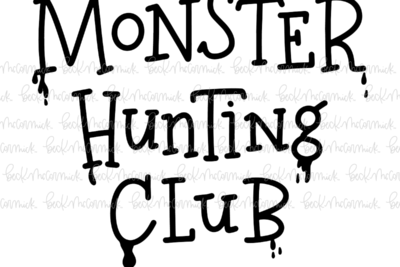 MONSTER
HunTing
CLUB